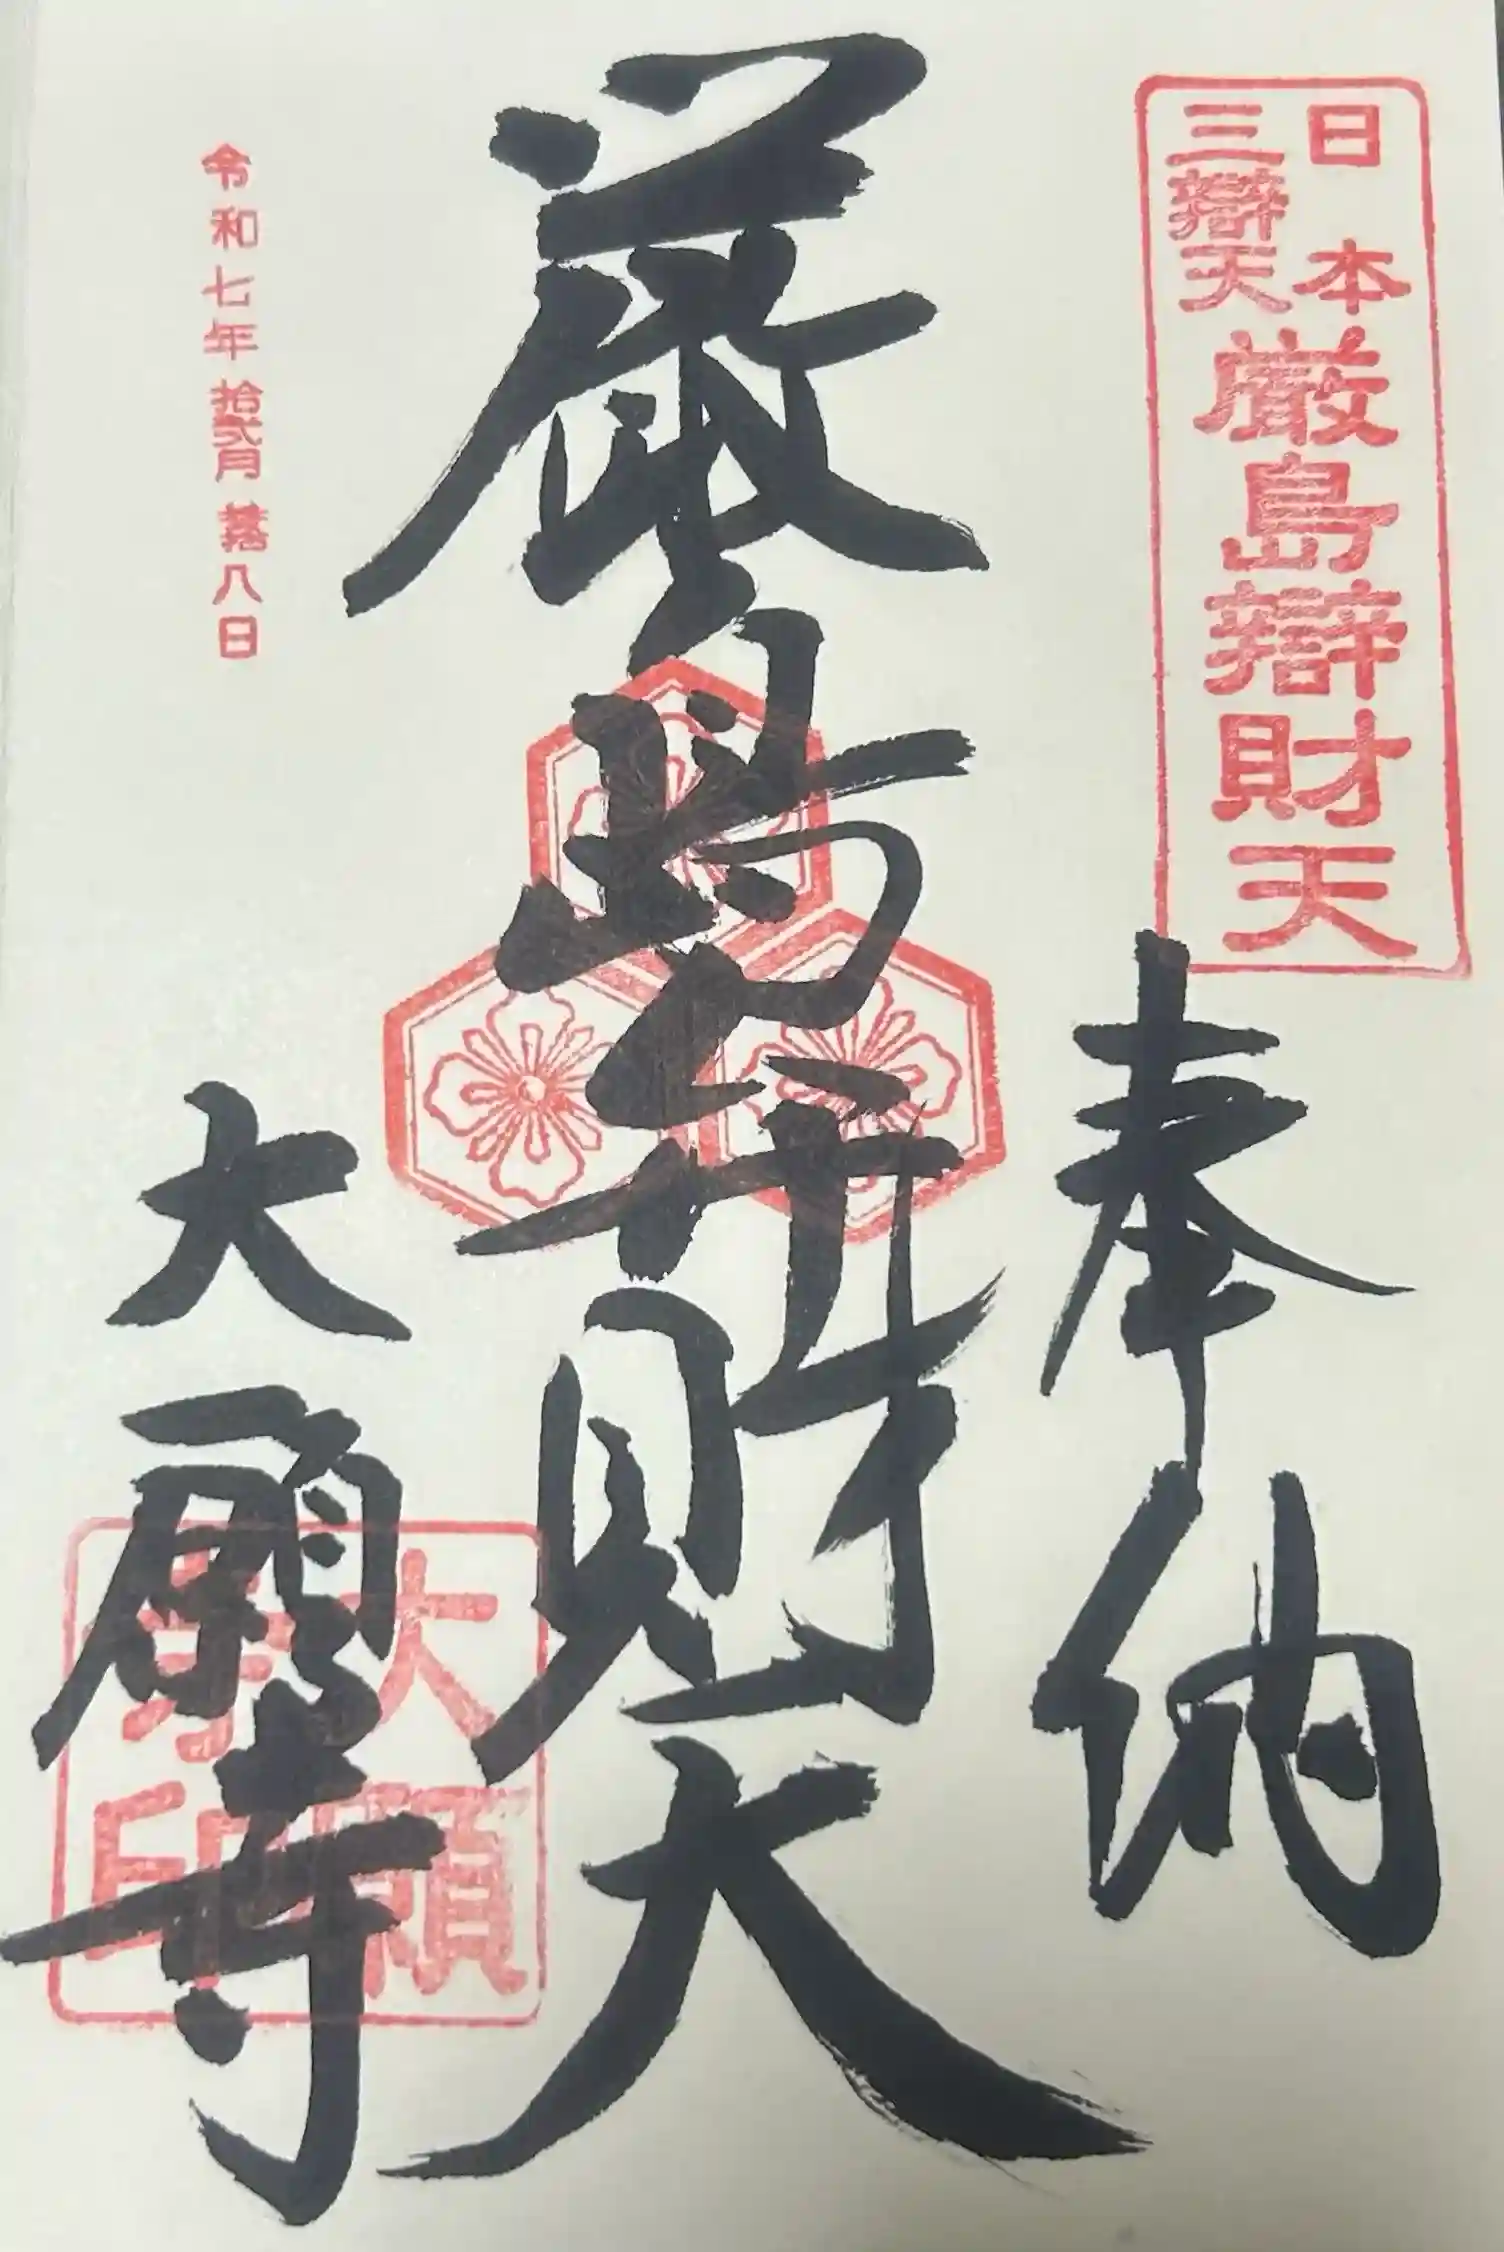 日本
三辯天
厳島辯財天
奉納
厳島弁財天
令和七年拾弐月
八日
大願寺
大願
寺印